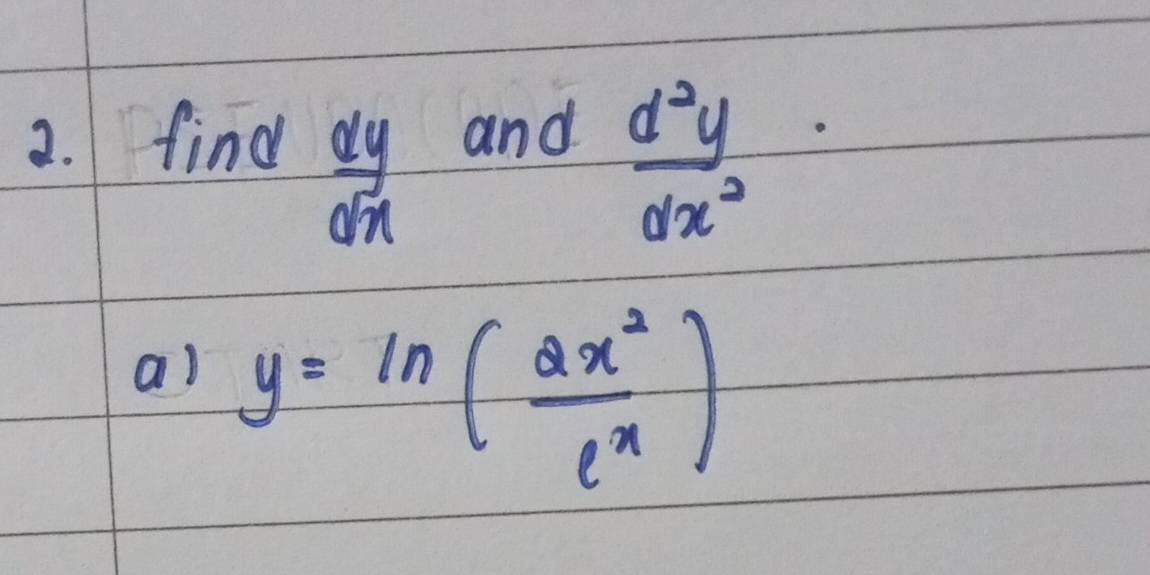 2. find dy/dx and d²y/dx² .
a) y = ln ( 2x² / eˣ )